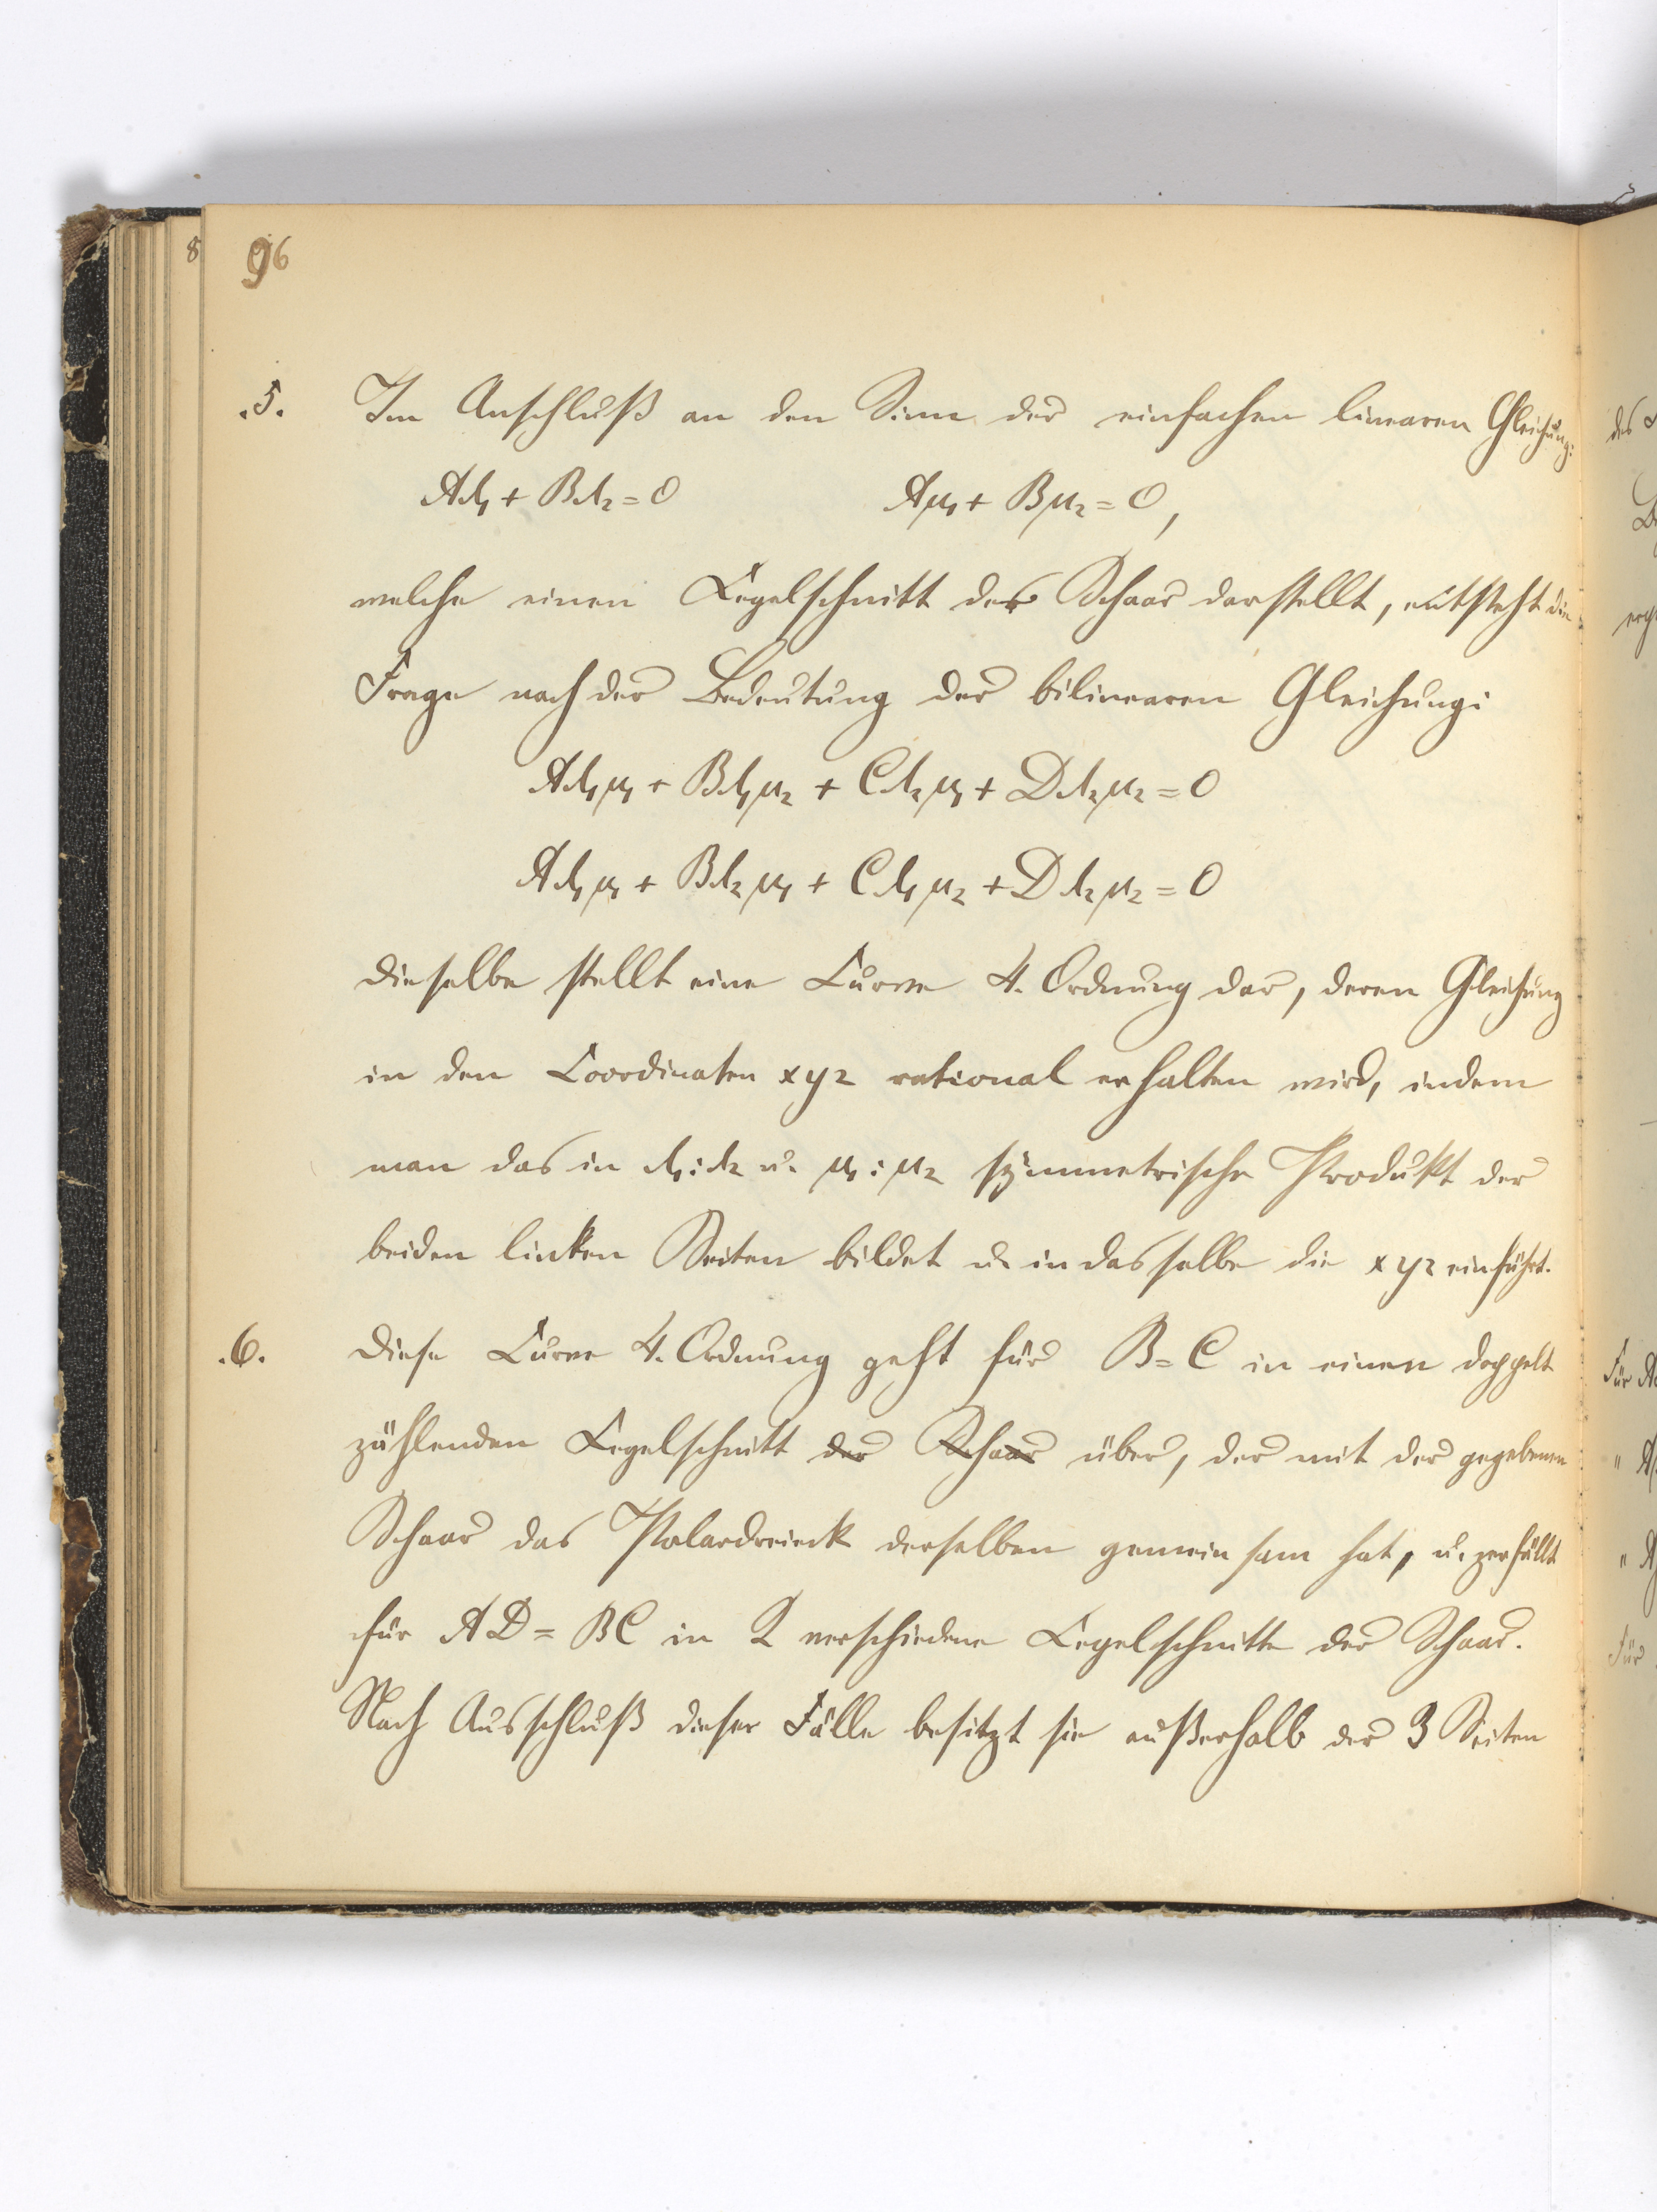 96
.5. Im Anschluß an den Sinn der einfachen linearen Gleichung:
Aλ₁ + Bλ₂ = 0 Aμ₁ + Bμ₂ = 0,
welche einen Kegelschnitt der Schaar darstellt, entsteht die
Frage nach der Bedeutung der bilinearen Gleichung:
Aλ₁μ₁ + Bλ₁μ₂ + Cλ₂μ₁ + Dλ₂μ₂ = 0
Aλ₁μ₁ + Bλ₂μ₁ + Cλ₁μ₂ + Dλ₂μ₂ = 0
Dieselbe stellt eine Curve 4. Ordnung dar, deren Gleichung
in den Coordinaten xyz rational erhalten wird, indem
man das in λ₁:λ₂ u. μ₁:μ₂ symmetrische Produkt der
beiden linken Seiten bildet u. in dasselbe die xyz einführt.
.6. Diese Curve 4. Ordnung geht für B = C in einen doppelt
zählenden Kegelschnitt der Schaar über, der mit der gegebenen
Schaar das Polardreieck derselben gemeinsam hat, u. zerfällt
für AD = BC in 2 verschiedene Kegelschnitte der Schaar.
Nach Ausschluß dieser Fälle besitzt sie außerhalb der 3 Seiten
8
des
Für
"
"
Für